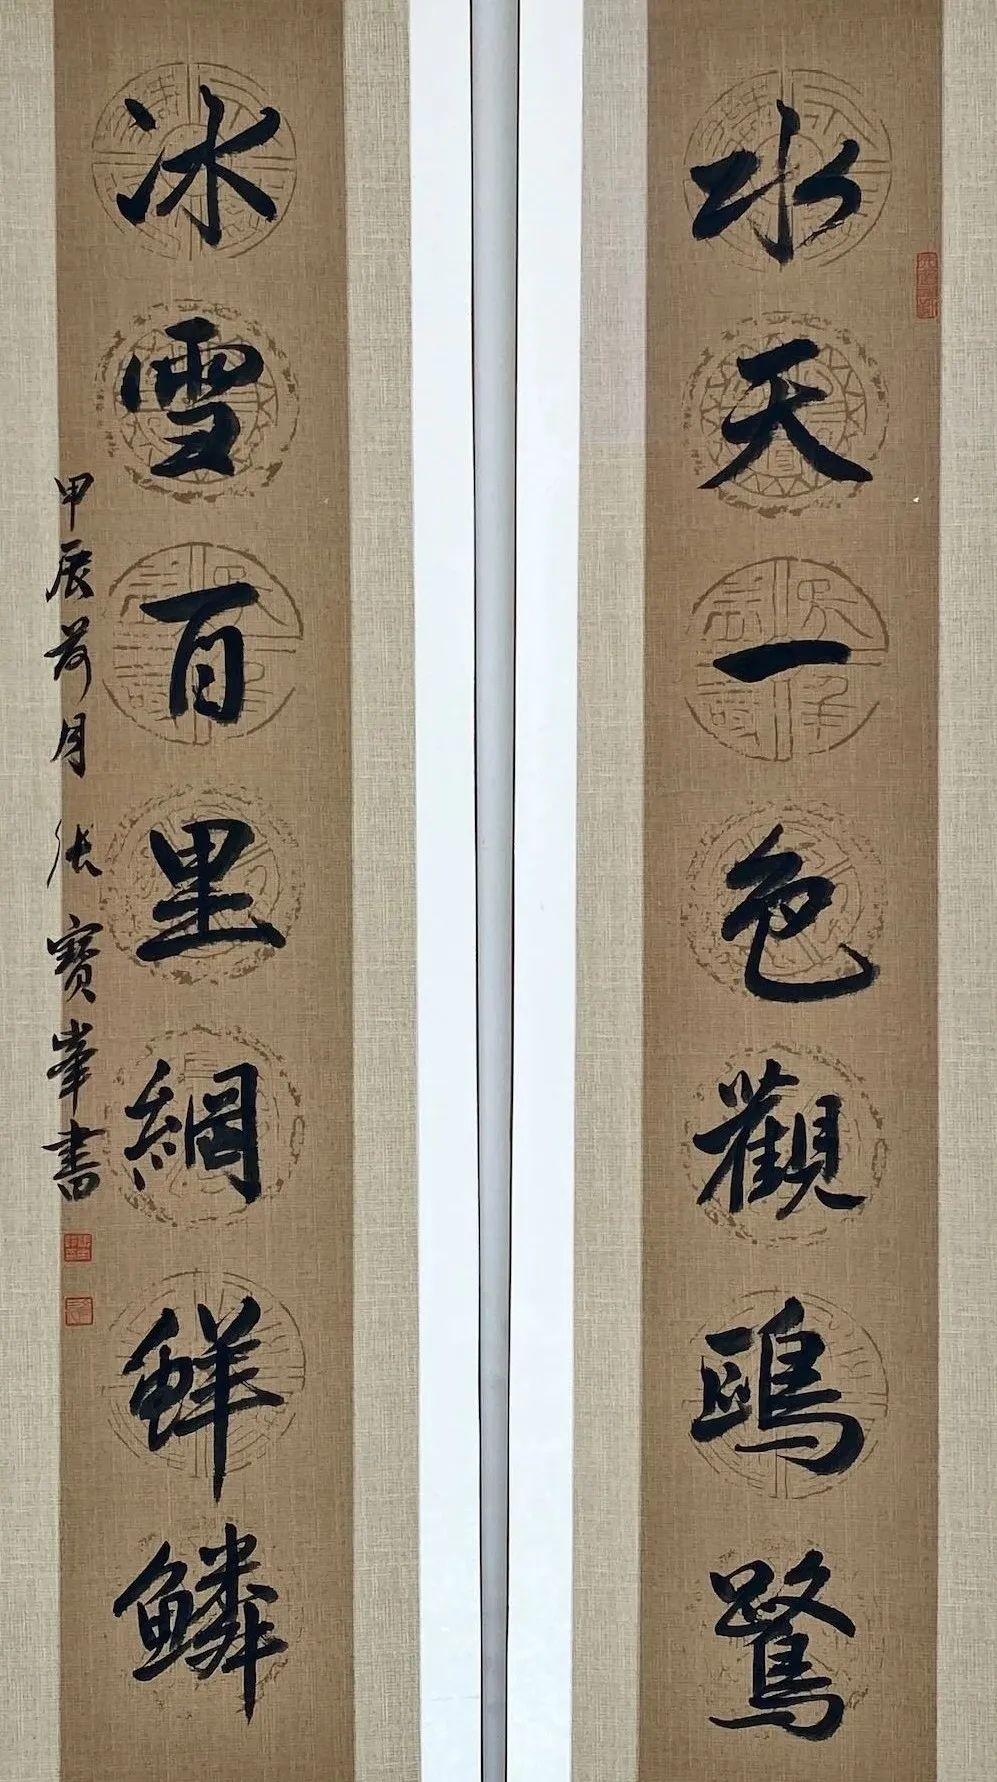 水天一色觀鷗鷺
冰雪百里網鮮鱗
甲辰荷月 张寶峯書